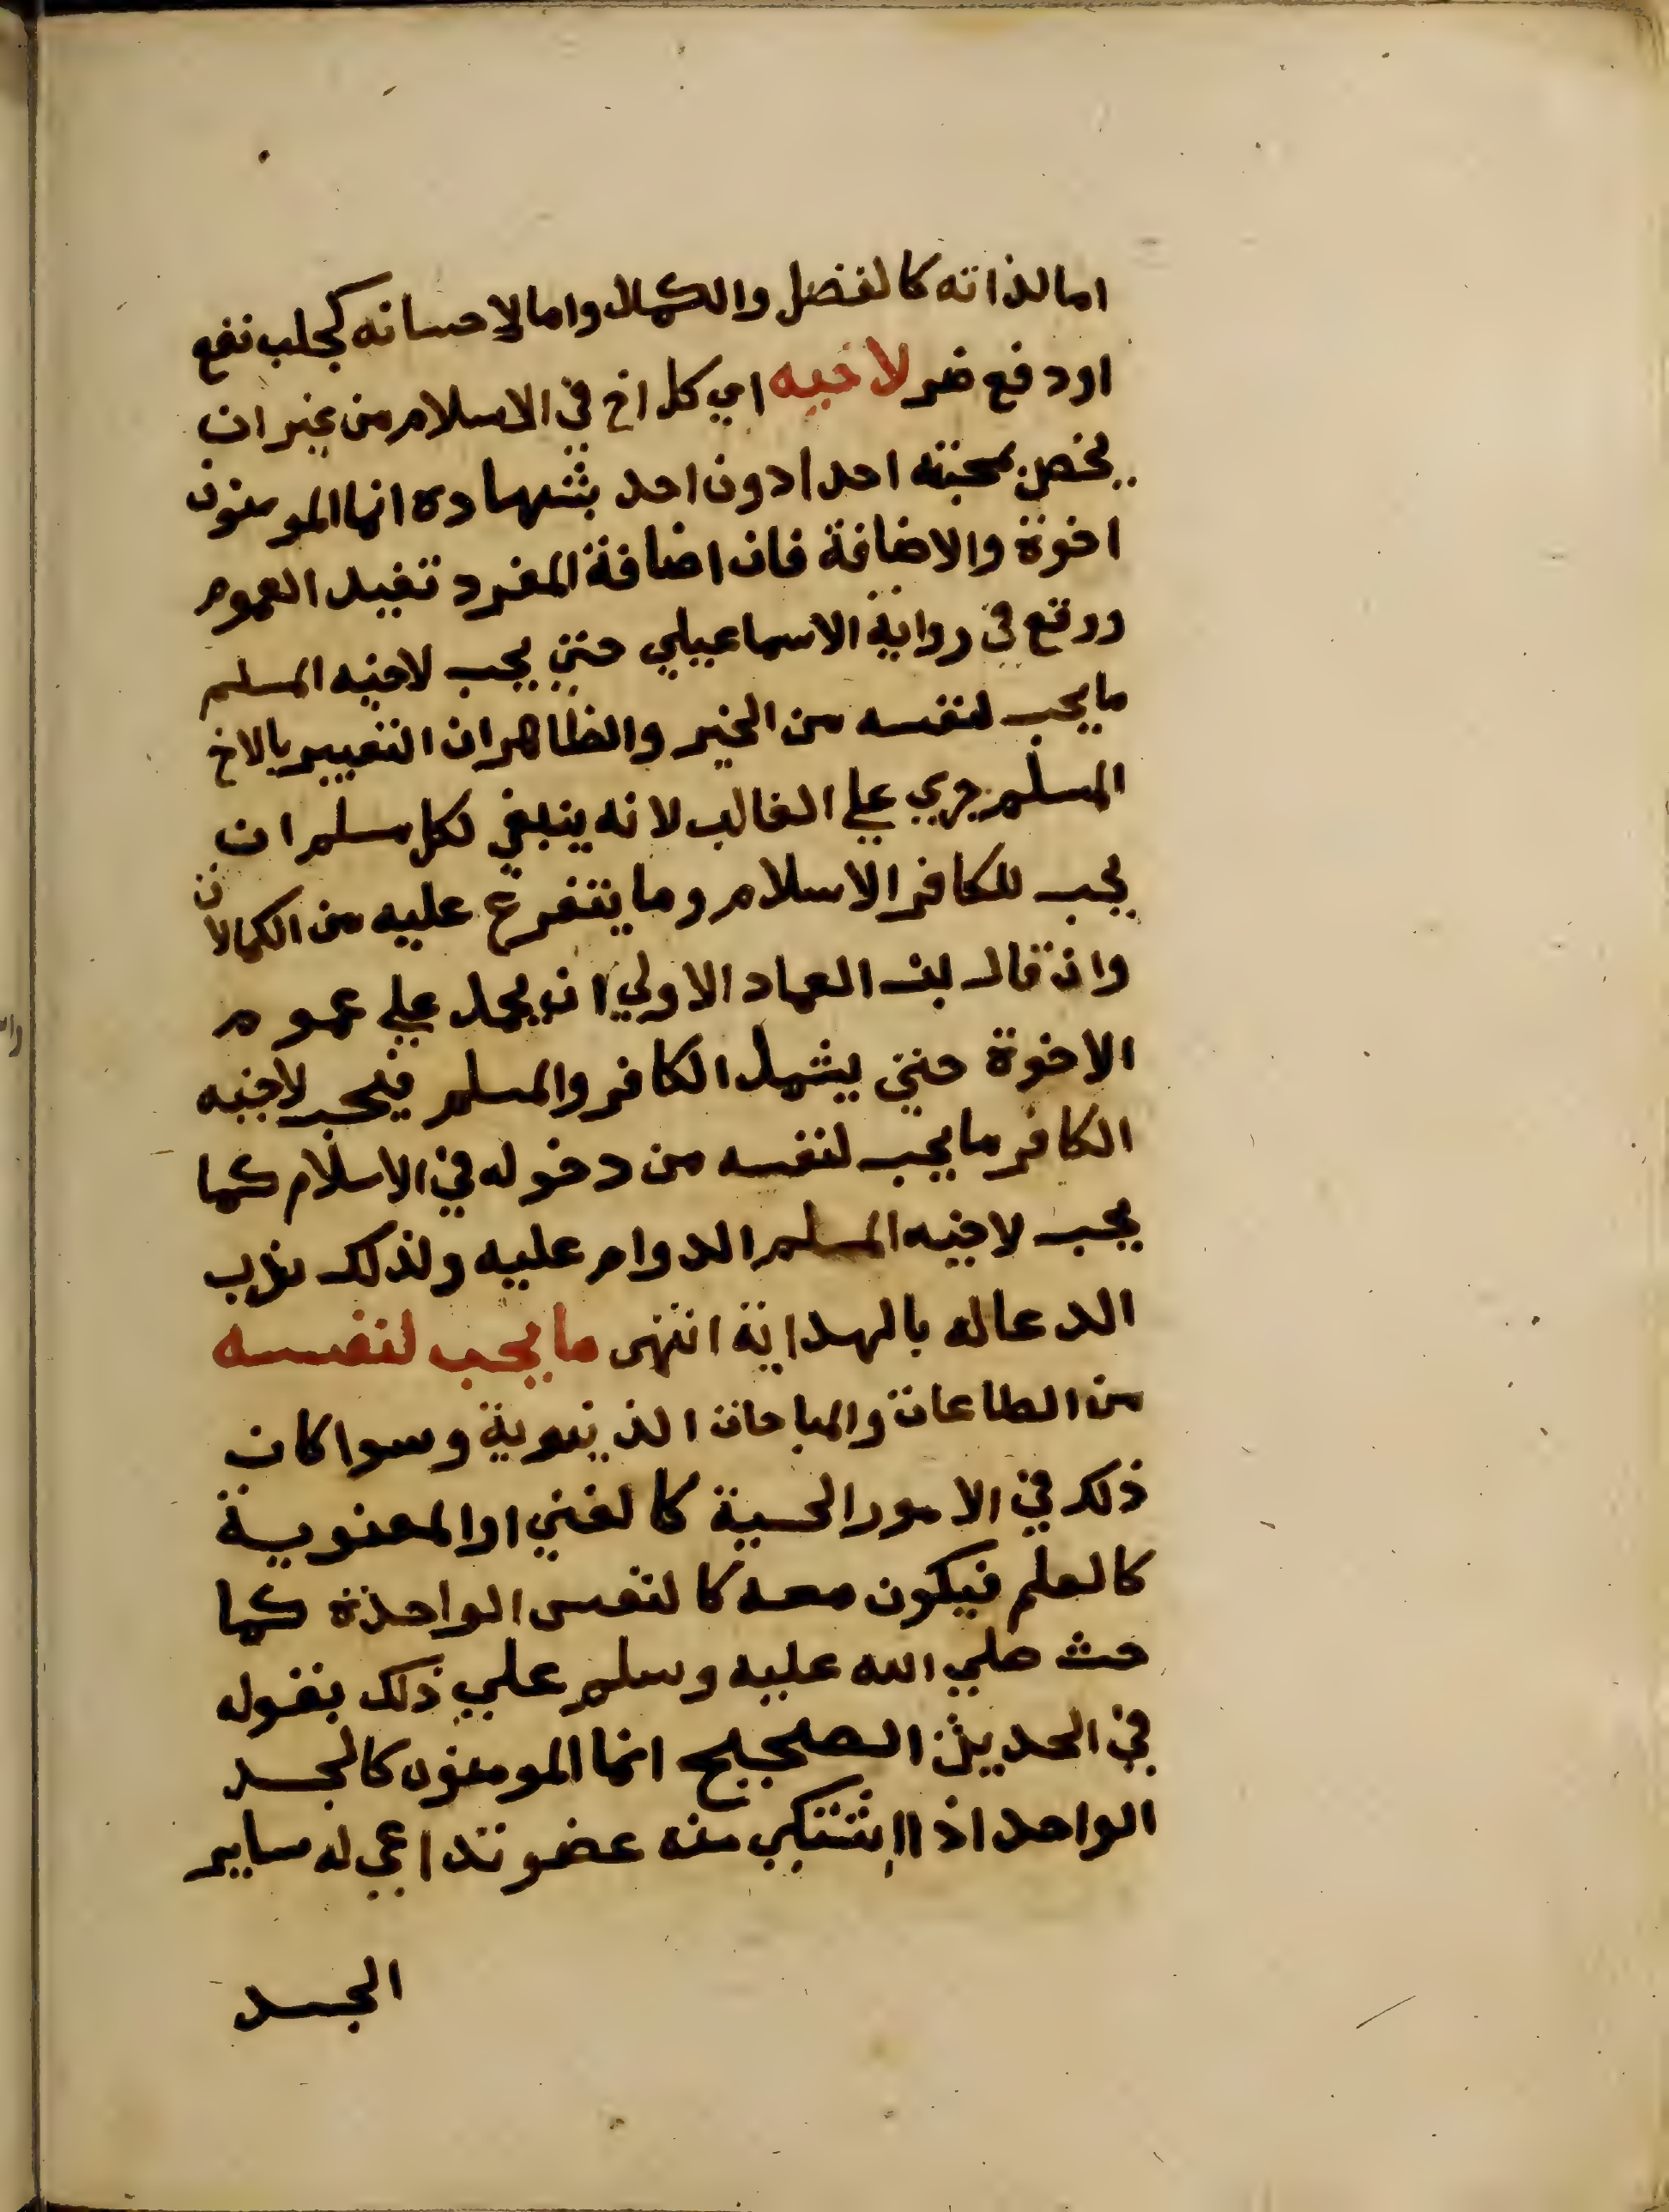 اما لذاته كالفضل والكمال واما لاحسانه كجلب نفع
او دفع ضر لاخيه اي كل اخ في الاسلام من غير ان
يخص بمحبته احدا دون احد بشهادة انما المومنون
اخوة والاضافة فان اضافة المفرد تفيد العموم
ووقع في رواية الاسماعيلي حتى يحب لاخيه المسلم
ما يحب لنفسه من الخير والظاهر ان التعبير بالاخ
المسلم جري علي الغالب لانه ينبغي لكل مسلم ان
يحب للكافر الاسلام وما يتفرع عليه من الكمالات
وان قال بن العماد الاولي ان يحمل علي عموم
الاخوة حتي يشمل الكافر والمسلم فيحب لاخيه
الكافر ما يحب لنفسه من دخوله في الاسلام كما
يحب لاخيه المسلم الدوام عليه ولذلك ندب
الدعا له بالهداية انتهى ما يحب لنفسه
من الطاعات والمباحات الدنيوية وسوا كان
ذلك في الامور الحسية كالغني او المعنوية
كالعلم فيكون معه كالنفس الواحدة كما
حث صلي الله عليه وسلم علي ذلك بقوله
في الحديث الصحيح انما المومنون كالجسد
الواحد اذا اشتكي منه عضو تداعي له ساير
الجسد